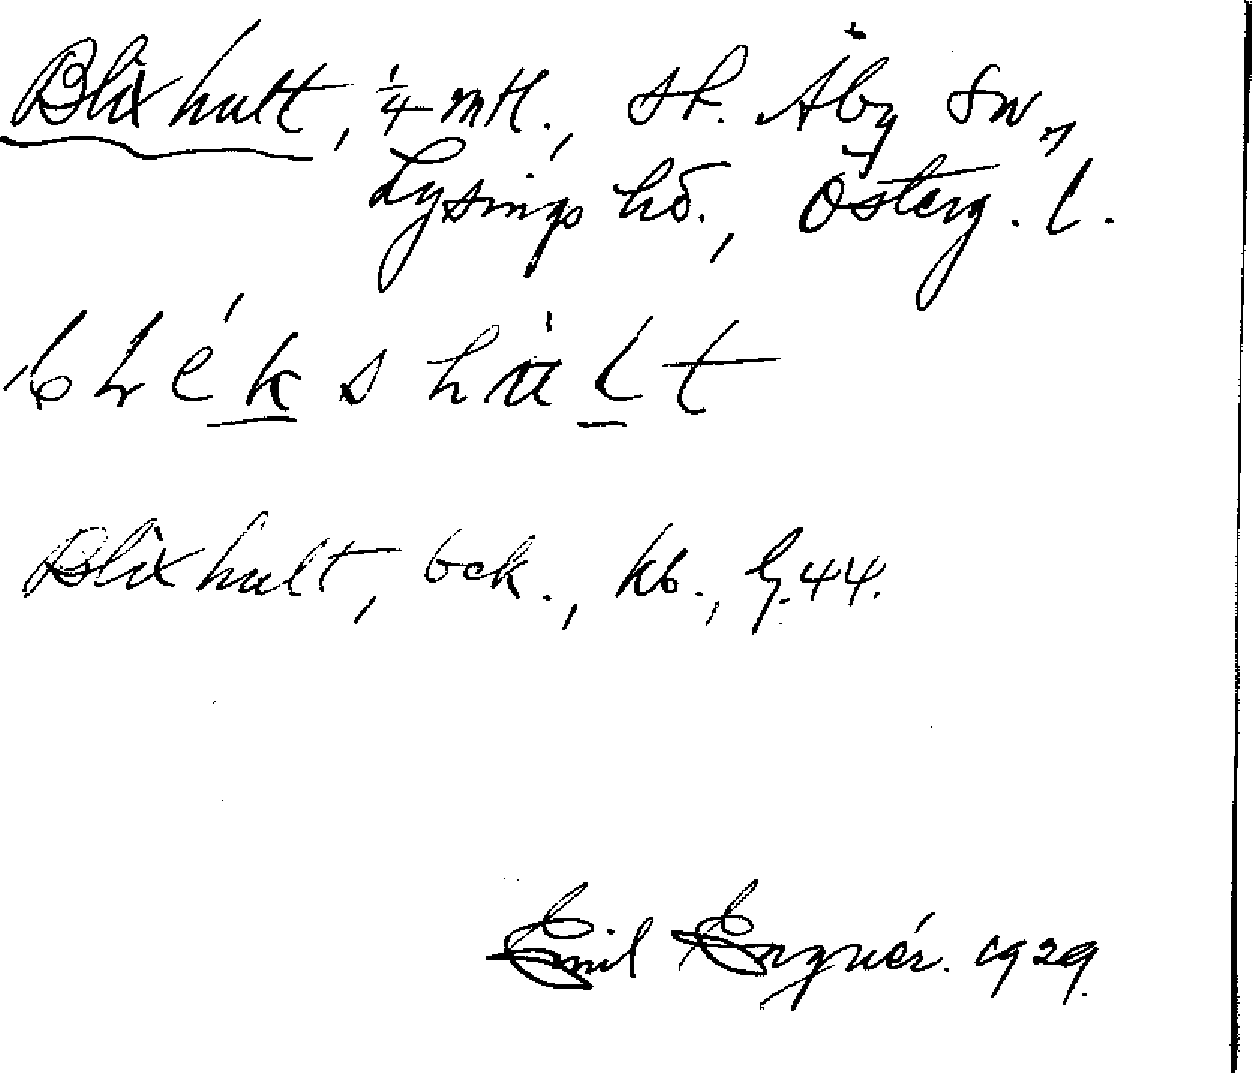 Blixhult, ¼ mtl., st. Åby sn,
Lysings hd., Österg. l.
bléks hùlt
Blixhult, bek., kb., G. 44.
Emil 1929.